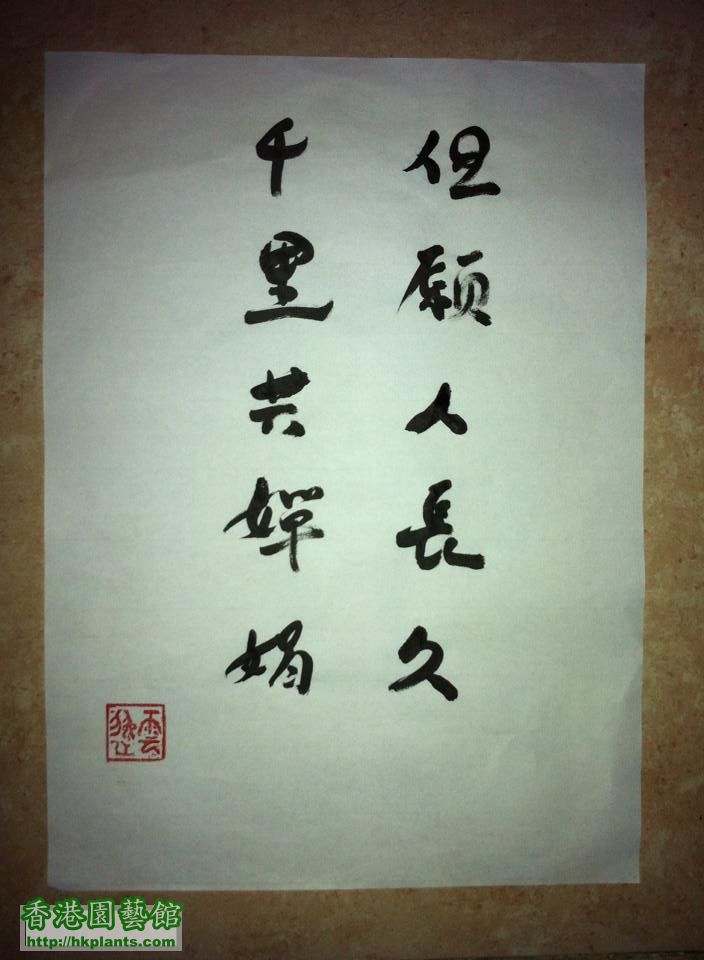 但願人長久
千里共嬋娟
香港園藝館
http://hkplants.com